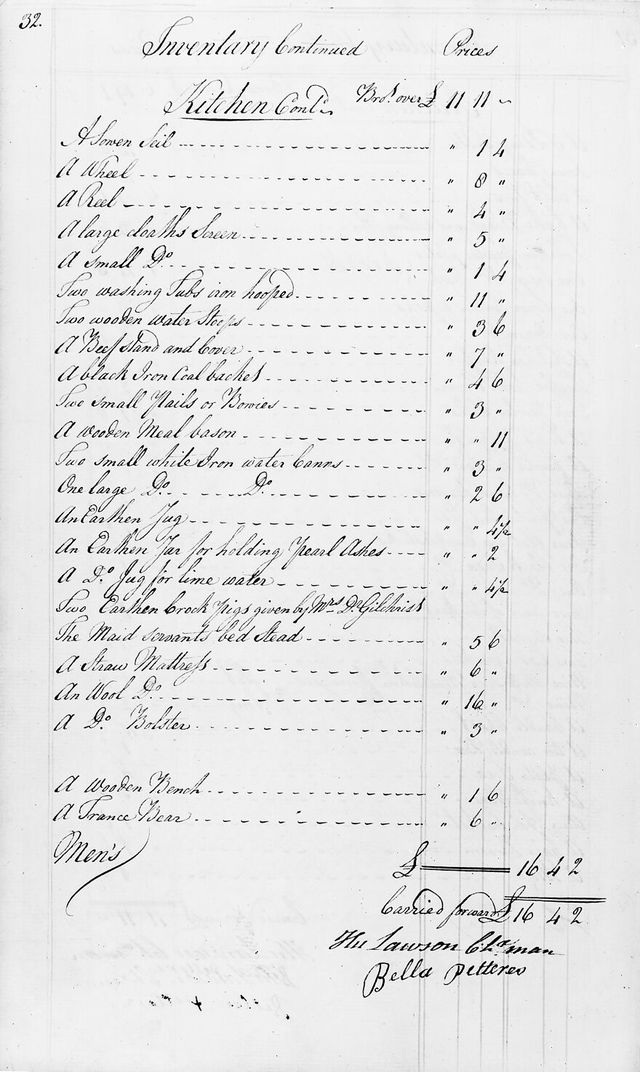 32.
Inventary Continued Prices
Kitchen Contd. Brot. over £ 11 11 ~
A Sowen Seil " 1 4
A Wheel " 8 "
A Reel " 4 "
A large cloaths Screen " 5 "
A small Do. " 1 4
Two washing Tubs iron hooped " 11 "
Two wooden water Stoops " 3 6
A Beef stand and Cover " 7 "
A black Iron Coal backet " 4 6
Two small Pails or Bowies " 3 "
A wooden Meal bason " " 11
Two small white Iron water Canns " 3 "
One large Do. Do. " 2 6
An Earthen Jug " " 4½
An Earthen Jar for holding Pearl Ashes " " 2
A Do. Jug for lime water " " 4½
Two Earthen Crock Pigs given by Mrs Dr Gilchrist
The Maid servants bed stead " 5 6
A Straw Mattress " 6 "
An Wool Do. " 16 "
A Do. Bolster " 3 "
A Wooden Bench " 1 6
A Trance Bear " 6 "
Men's
£ 16 4 2
Carried forward £ 16 4 2
Hu Lawson Chairman
Bella